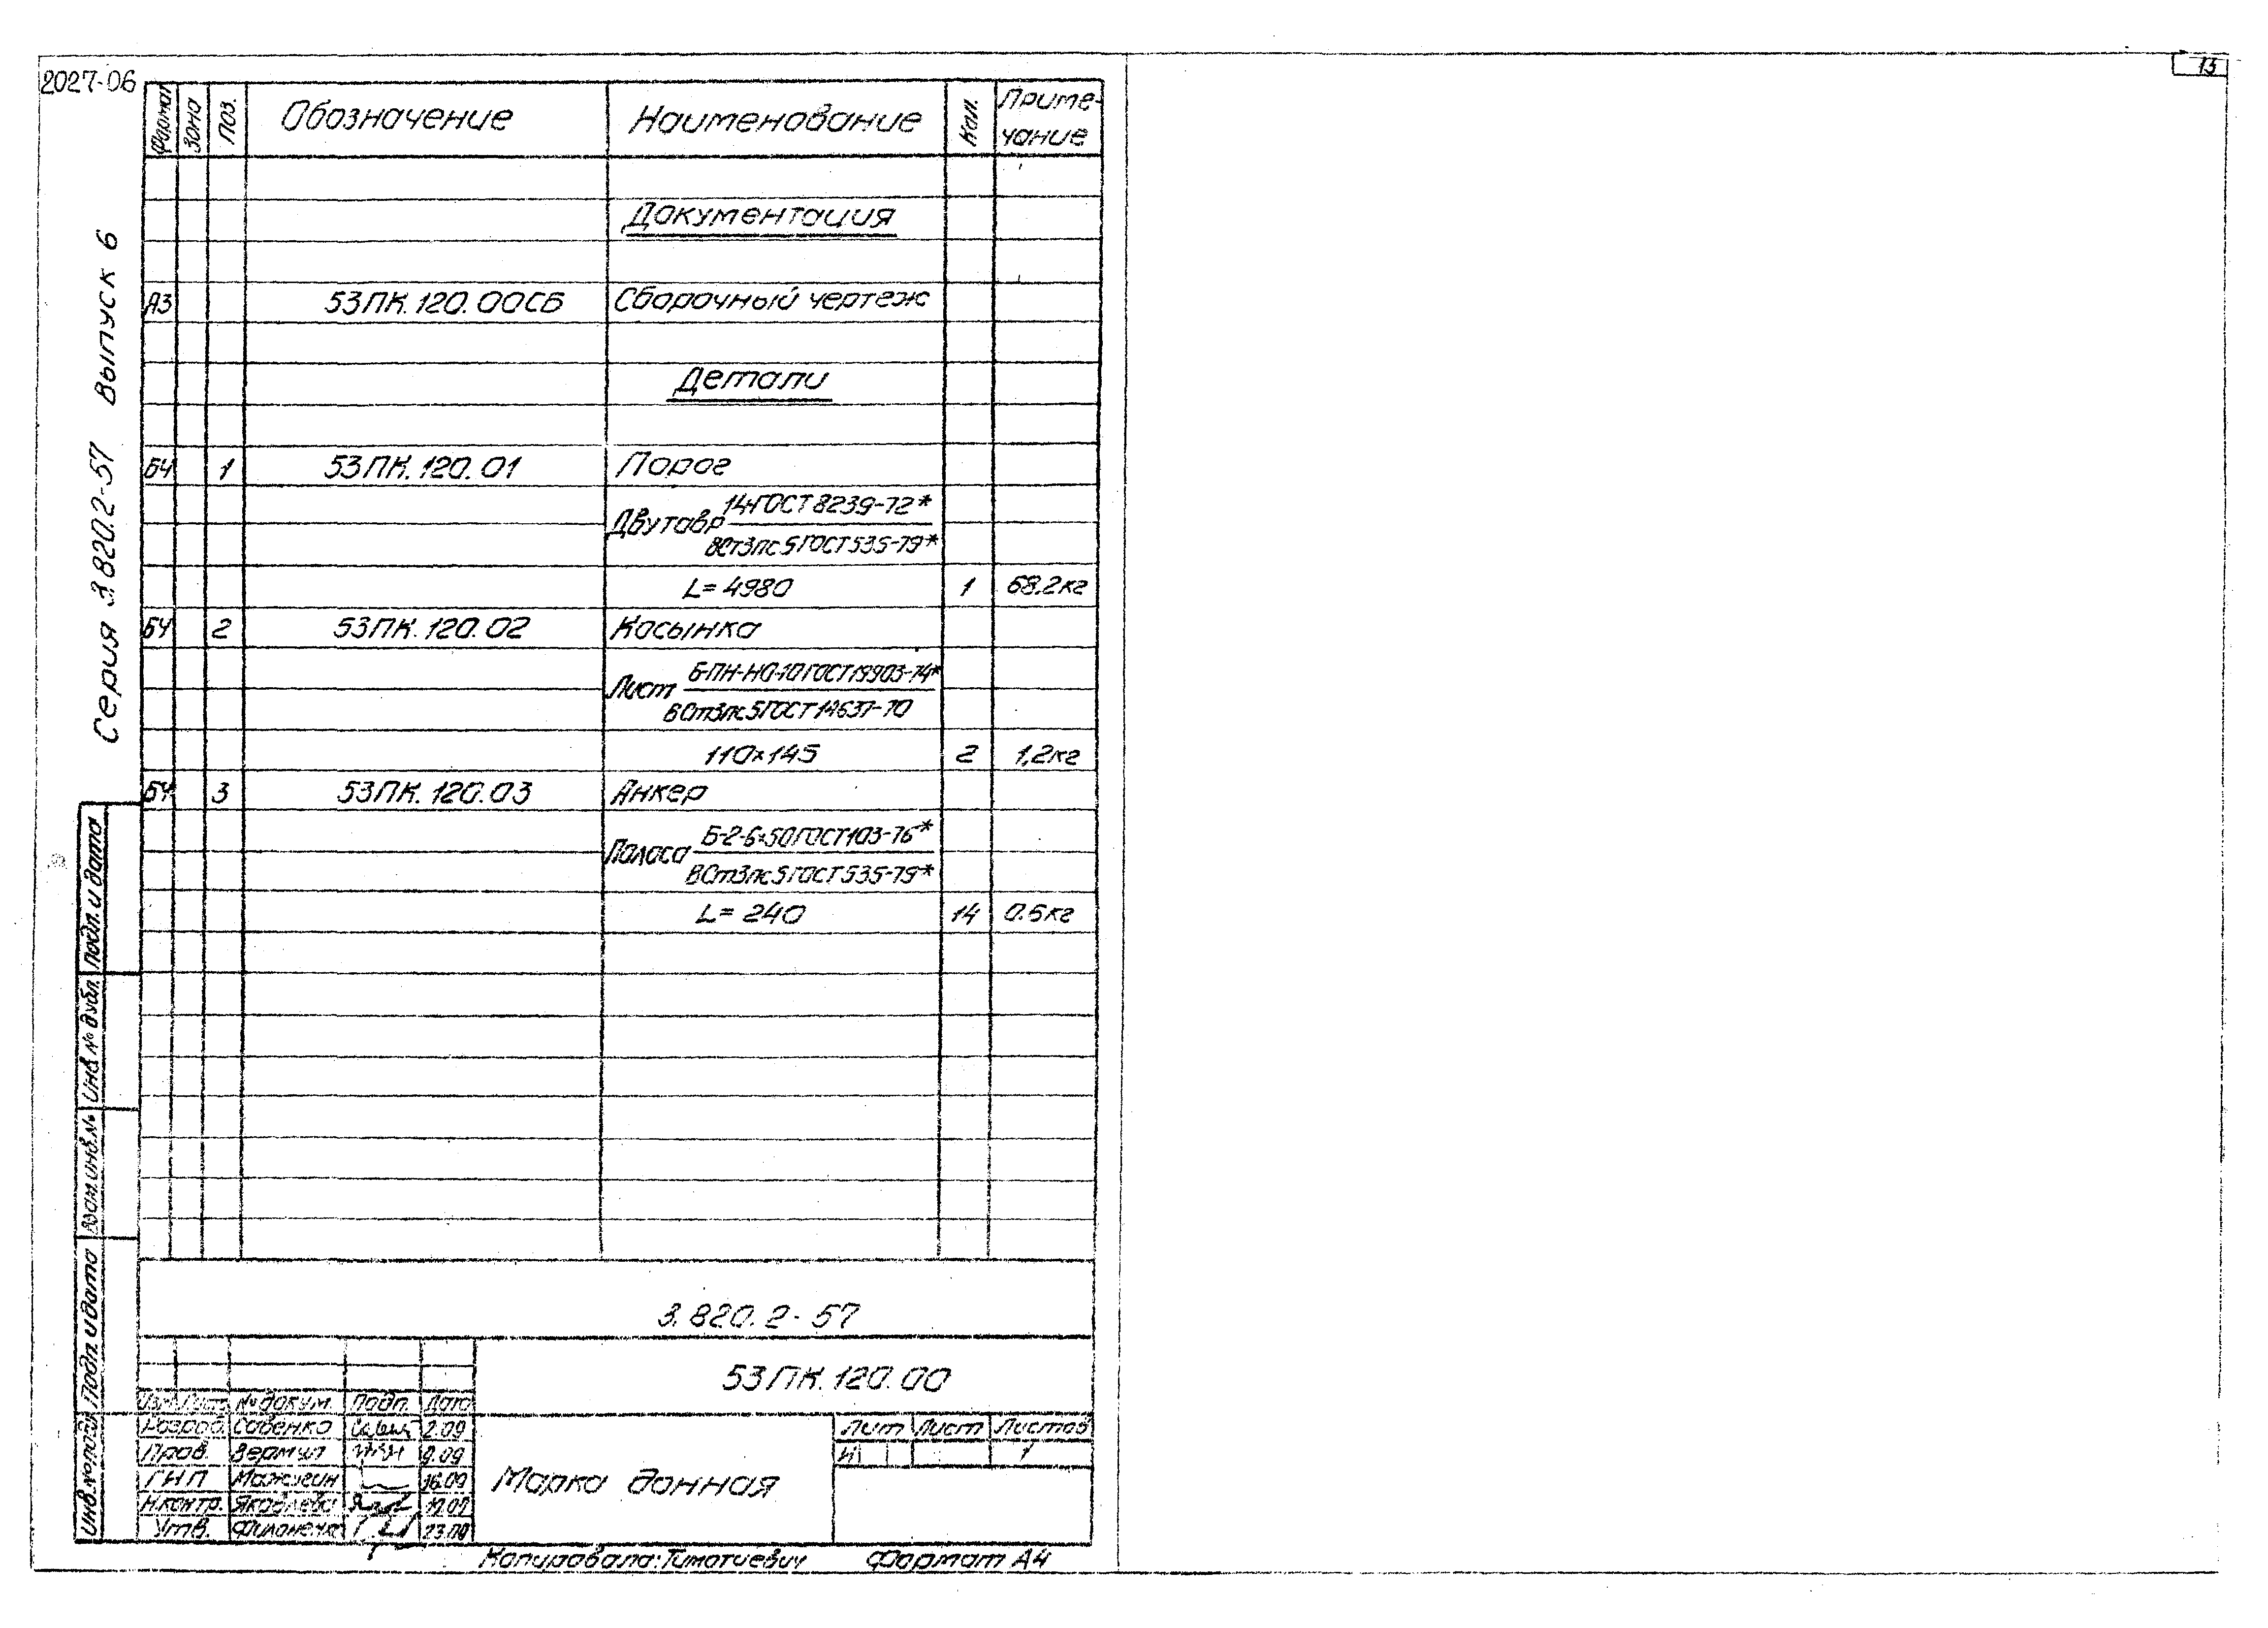 2027-06
13
Серия 3.820.2-57 Выпуск 6
Формат Зона Поз. Обозначение Наименование Кол. Приме-
чание
Документация
А3 53ПК.120.00СБ Сборочный чертеж
Детали
БЧ 1 53ПК.120.01 Порог
Двутавр 14 ГОСТ 8239-72*
ВСт3пс5 ГОСТ 535-79*
L= 4980 1 68.2кг
БЧ 2 53ПК.120.02 Косынка
Лист Б-ПН-НО-10 ГОСТ 19903-74*
ВСт3пс5 ГОСТ 14637-70
110×145 2 1,2кг
БЧ 3 53ПК.120.03 Анкер
Полоса Б-2-6×50 ГОСТ 103-76*
ВСт3пс5 ГОСТ 535-79*
L= 240 14 0.5кг
Подп. и дата
Инв. № дубл.
Взам. инв. №
Подп. и дата
Инв. № подл.
3.820.2-57
53ПК.120.00
Изм. Лист № докум. Подп. Дата
Разраб. Савенко 2.09
Пров. Вермул 9.09
ГИП Мажугин 16.09
Н.контр. Яковлева
Утв. Филоненко
Марка донная
Лит Лист Листов
И 1
Копировала: Тиматиевич Формат А4